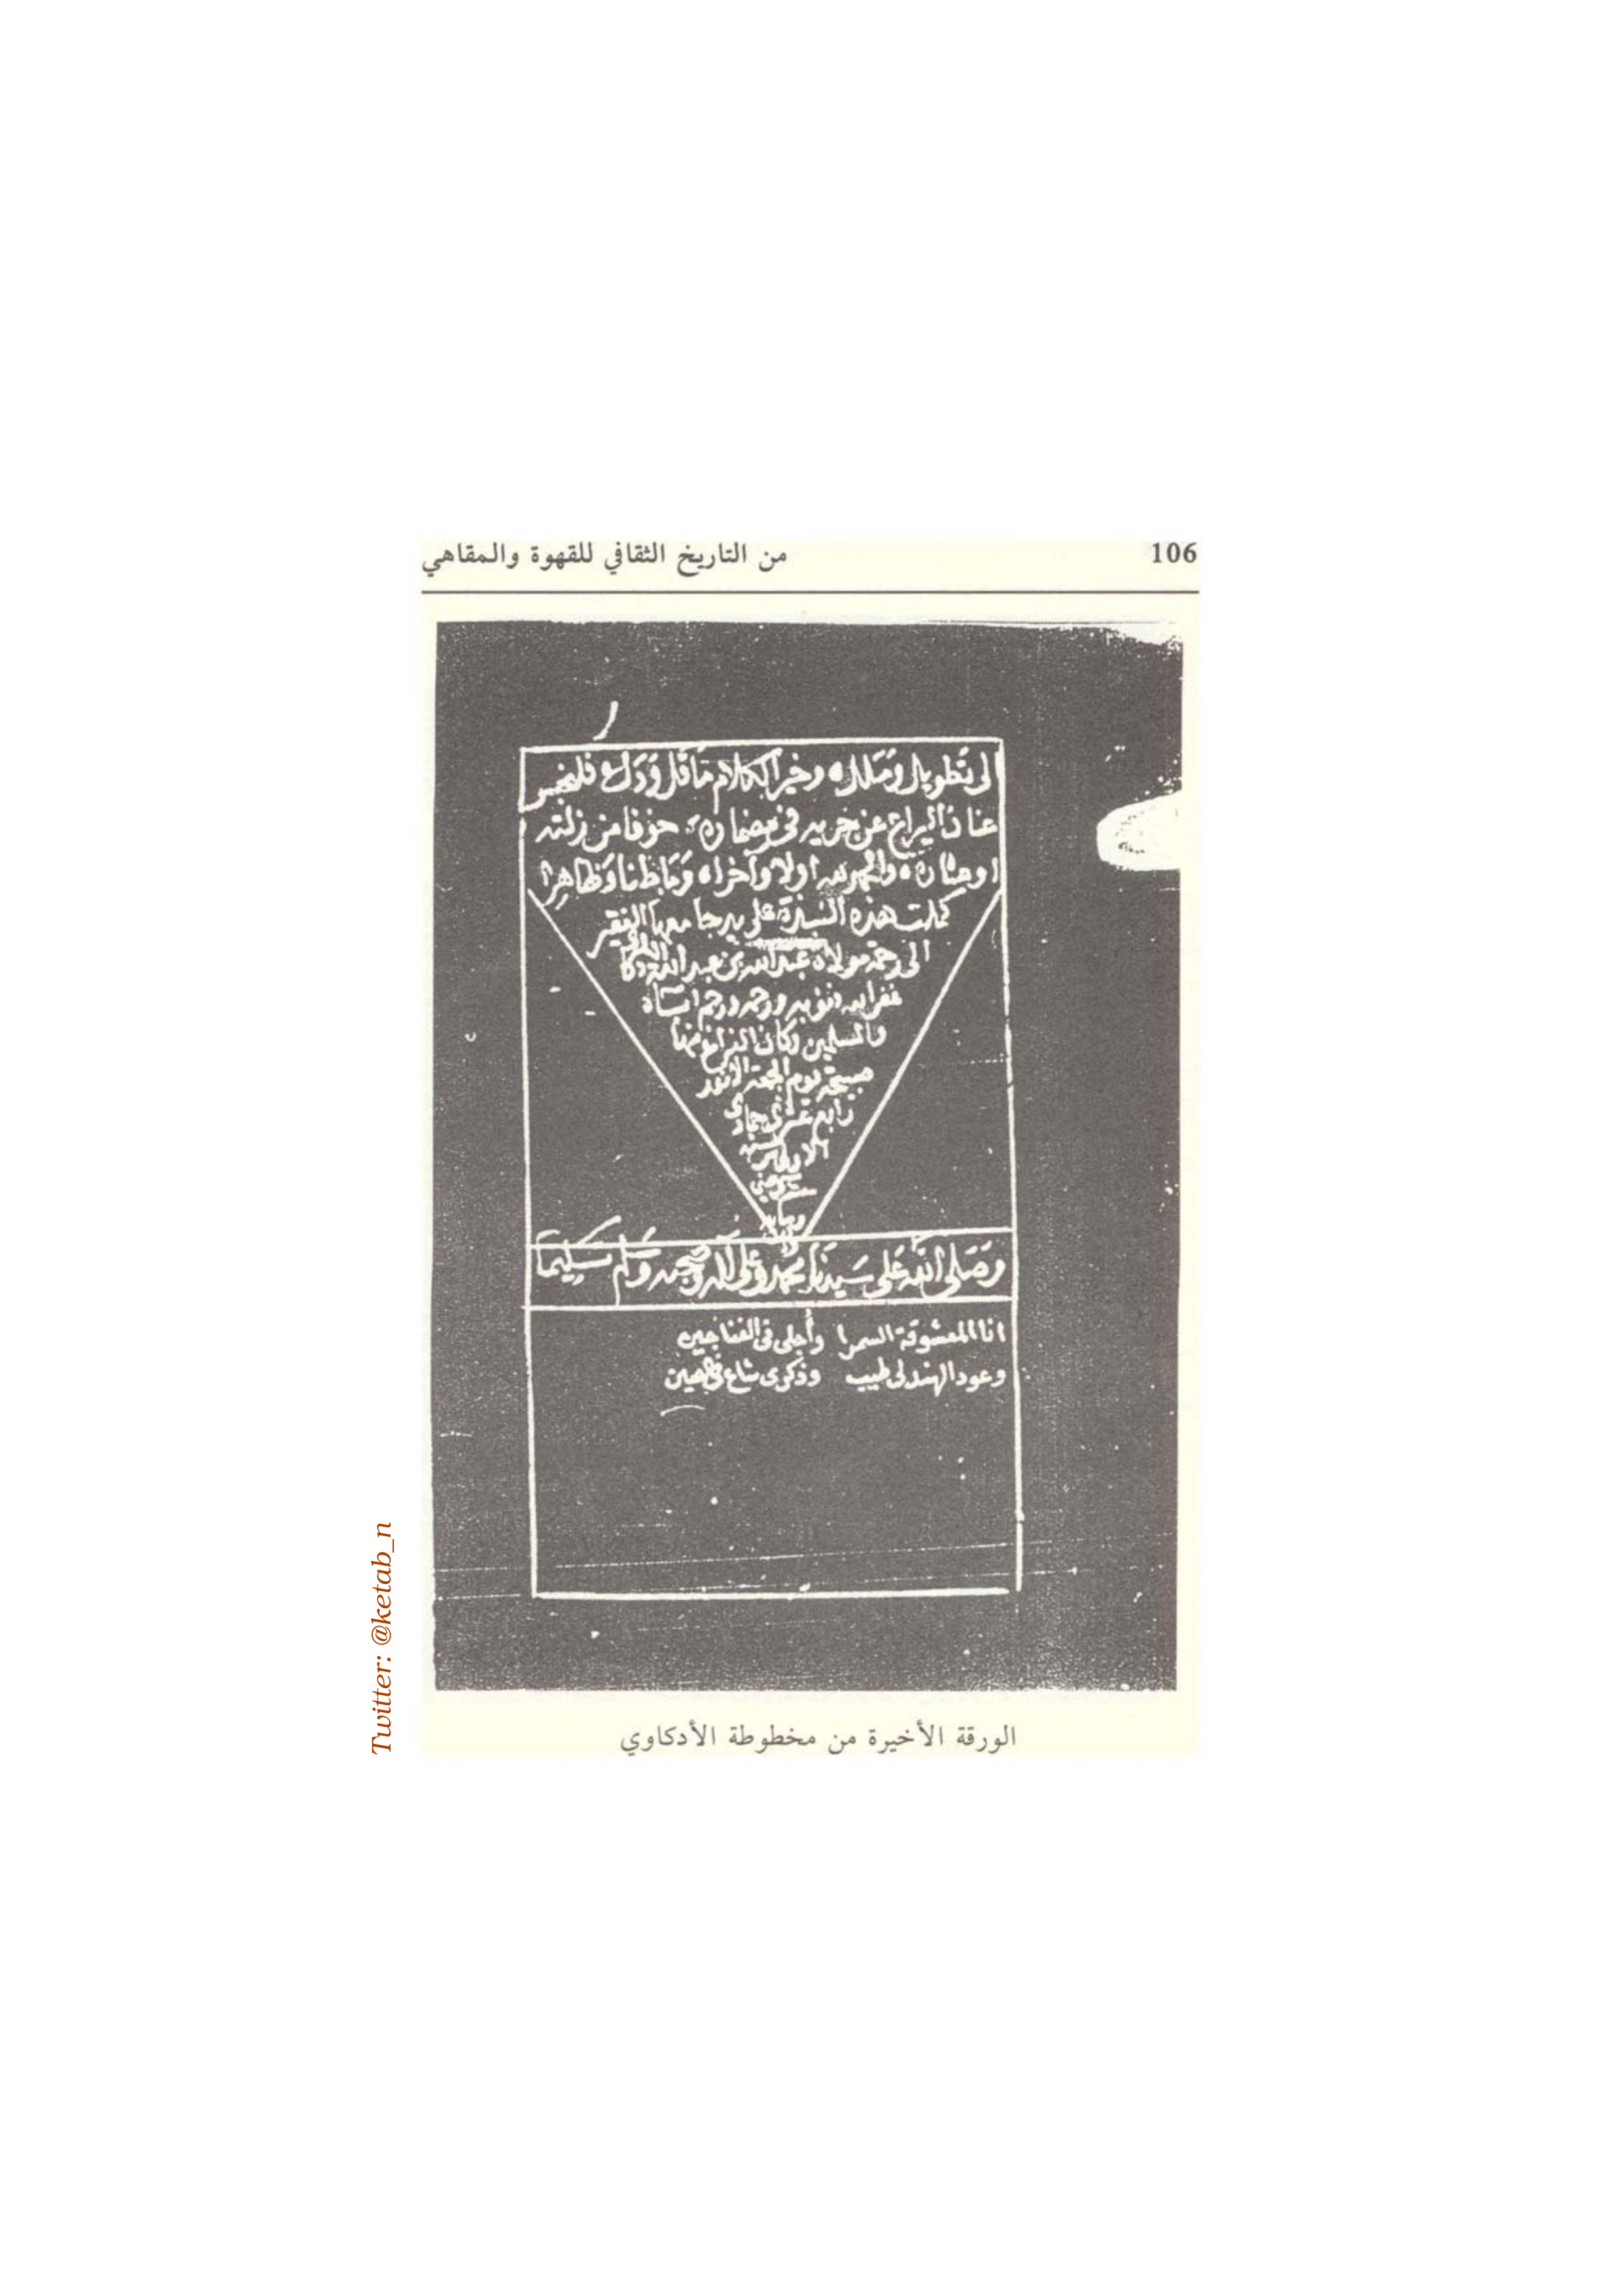 106 من التاريخ الثقافي للقهوة والمقاهي
الى تطويل وملل وخير الكلام ما قل ودل فلنحبس
عنان اليراع عن جريه في مضماره خوفا من زلته
او عثاره والحمد لله اولا وآخرا وباطنا وظاهرا
كملت هذه النبذة على يد جامعها الفقير
الى رحمة مولاه عبد الله بن عبد الله
غفر الله ذنوبه ورحمه ورحم اسلافه
والمسلمين وكان الفراغ منها
صبيحة يوم الجمعة الأنور
رابع جمادى
وصلى الله على سيدنا محمد وعلى آله وصحبه وسلم تسليما
انا المعشوقة السمرا وأجلى في الفناجين
وعود الهند لي طيب وذكري شاع في الصين
الورقة الأخيرة من مخطوطة الأدكاوي
Twitter: @ketab_n